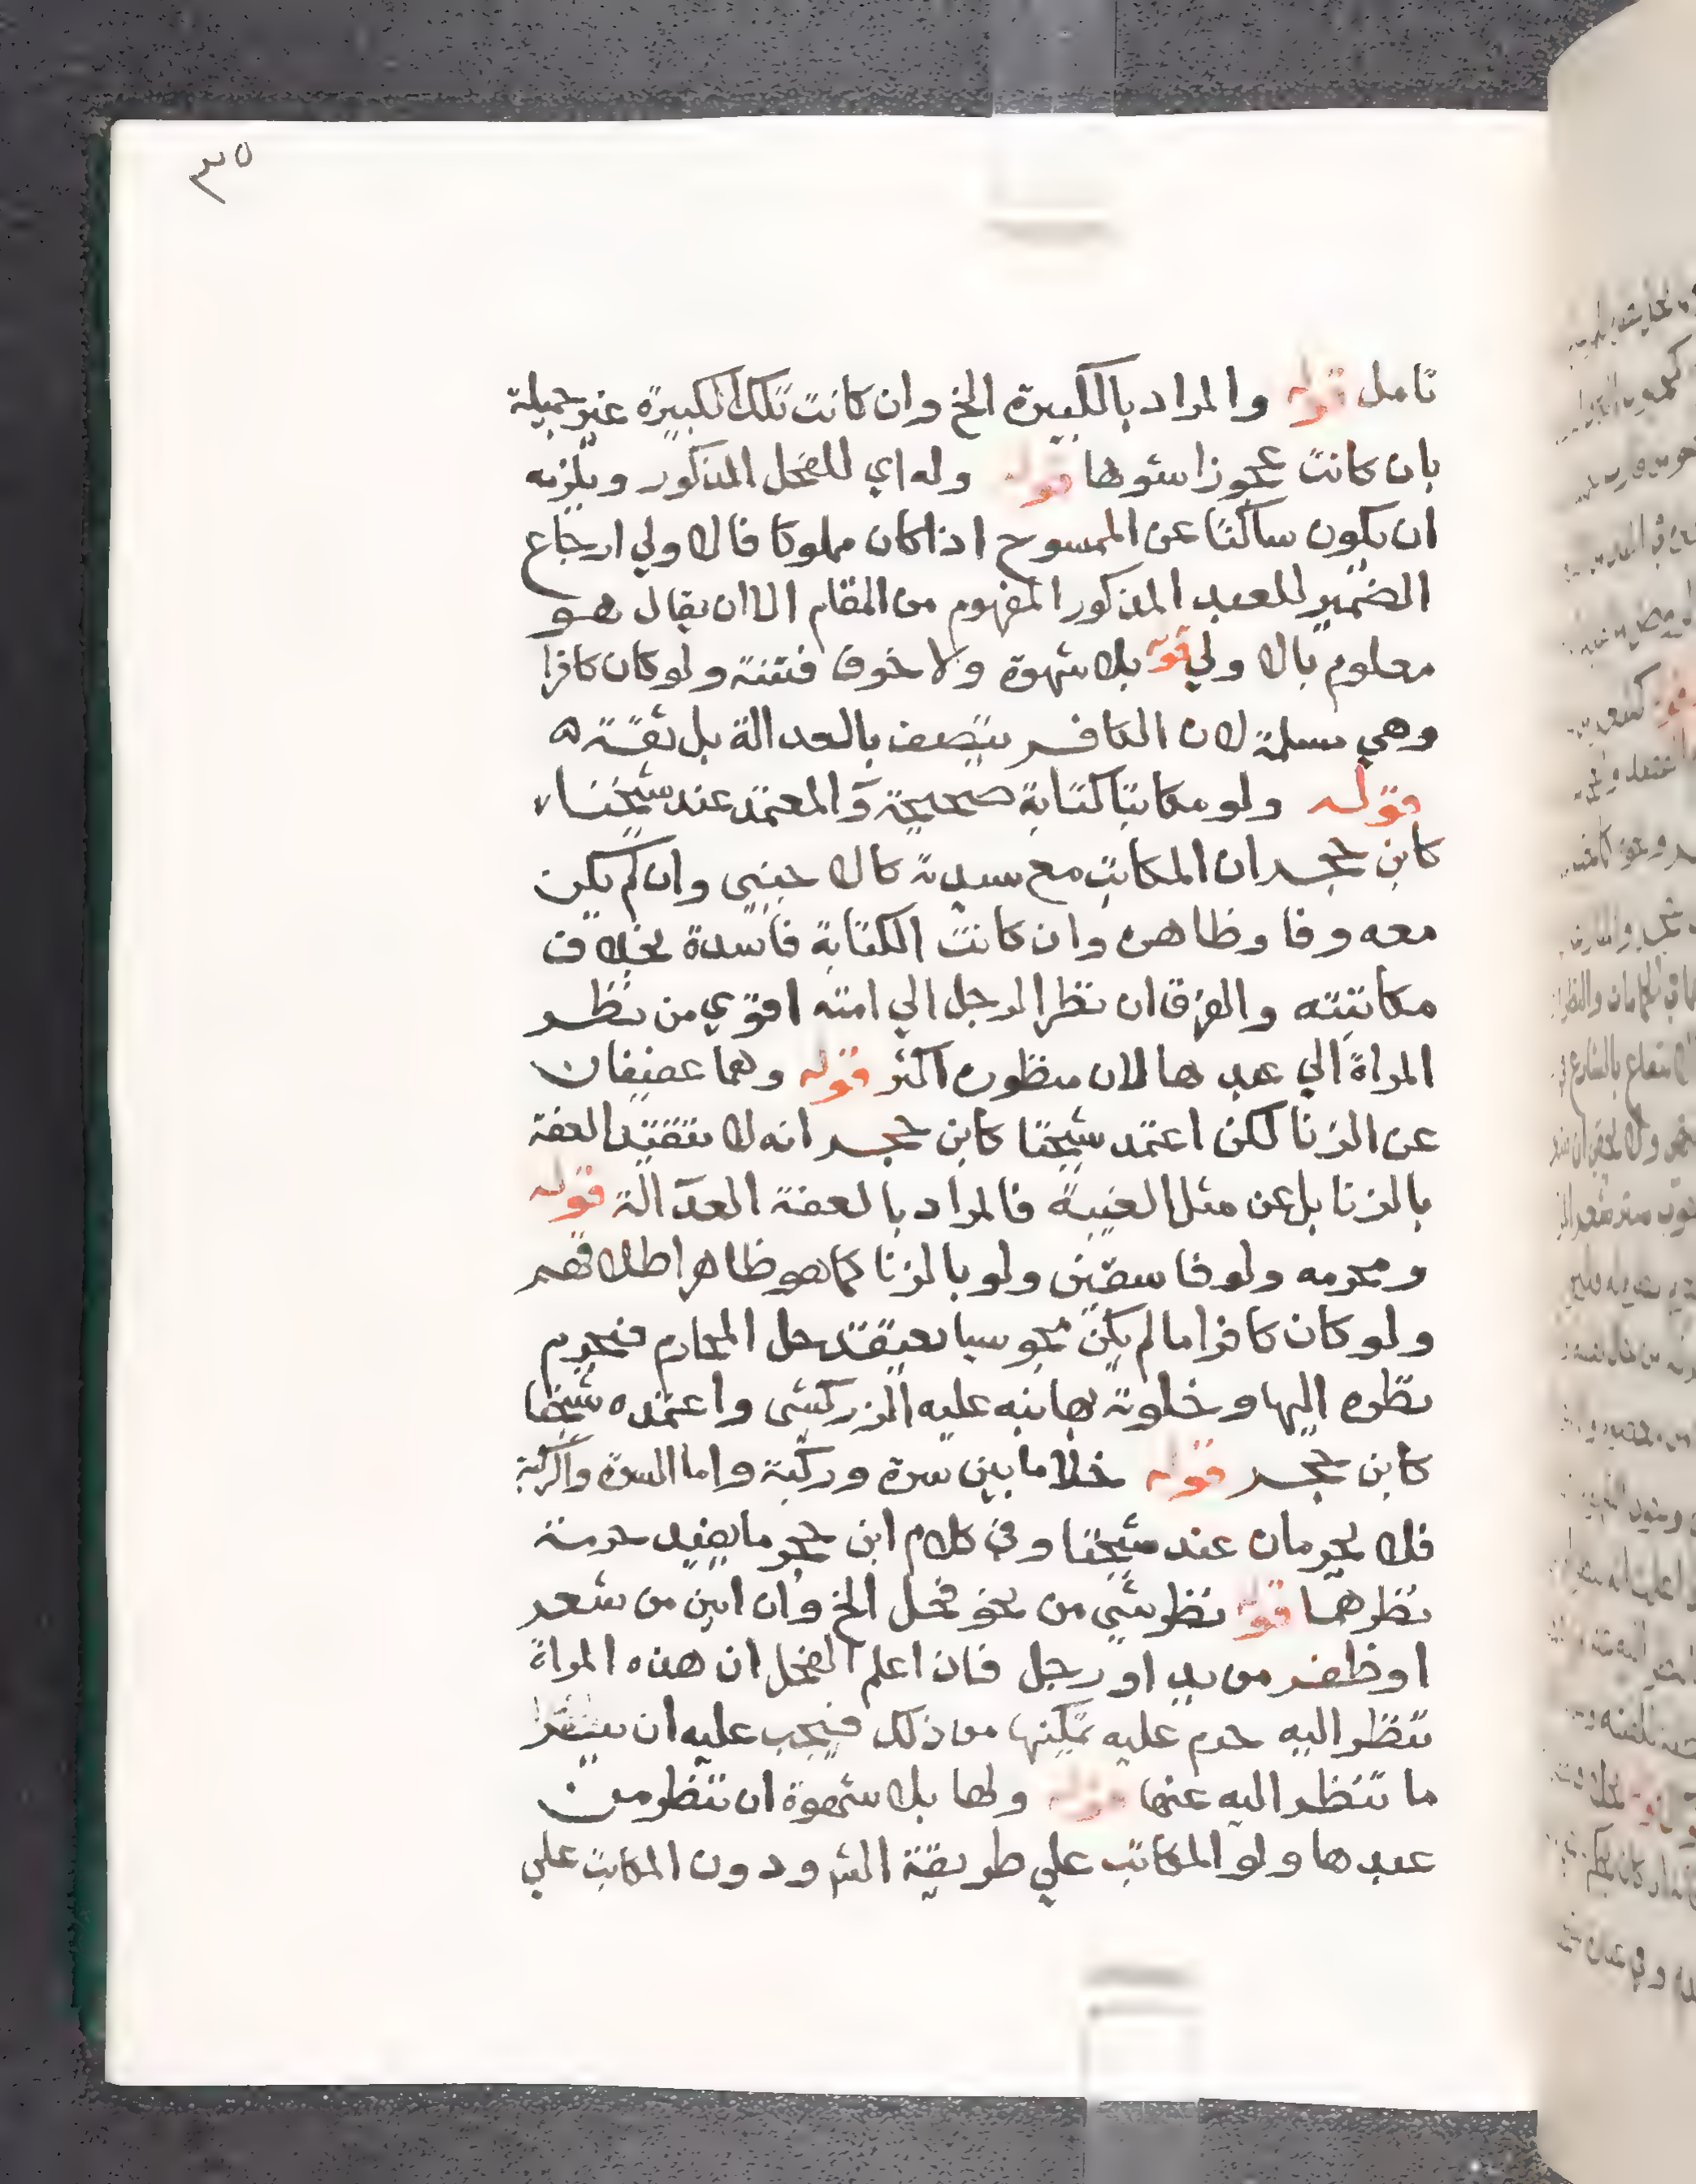 ٣٥
تامل قوله والمراد بالكبيرة الخ وان كانت تلك الكبيرة غير جميلة
بان كانت عجوزا شوها قوله وله اي للفحل المذكور ويلزمه
ان يكون ساكتا عن الممسوح اذا كان مملوكا فالاولي ارجاع
الضمير للعبد المذكور المفهوم من المقام الا ان يقال هو
معلوم بالاولي قوله بلا شهوة ولا خوف فتنة ولو كان كافرا
وهي مسلمة لان الكافر يتصف بالعدالة بل ثقة ه
قوله ولو مكاتبا كتابة صحيحة والمعتمد عند شيخنا
كابن حجر ان المكاتب مع سيدته كالاجنبي وان لم يكن
معه وفا وظاهره وان كانت الكتابة فاسدة بخلاف
مكاتبته والفرق ان نظر الرجل الي امته اقوي من نظر
المراة الي عبدها لان منظوره اكثر قوله وهما عفيفان
عن الزنا لكن اعتمد شيخنا كابن حجر انه لا يتقيد العفة
بالزنا بل عن مثل الغيبة فالمراد بالعفة العدالة قوله
ومحرمه ولو فاسقين ولو بالزنا كما هو ظاهر اطلاقهم
ولو كان كافرا ما لم يكن مجوسيا يعتقد حل المحارم فيحرم
نظره اليها وخلوته بها نبه عليه الزركشي واعتمده شيخنا
كابن حجر قوله خلا ما بين سرة وركبة واما السرة والركبة
فلا يحرمان عند شيخنا وفي كلام ابن حجر ما يفيد حرمة
نظرهما قوله نظر شي من نحو فحل الخ وان ابين من شعر
او ظفر من يد او رجل فان اعلم الفحل ان هذه المراة
تنظر اليه حرم عليه تمكينها من ذلك فيجب عليه ان يستتر
ما تنظر اليه عنها قوله ولها بلا شهوة ان تنظر من
عبدها ولو المكاتب علي طريقة الش ودون المكاتب علي